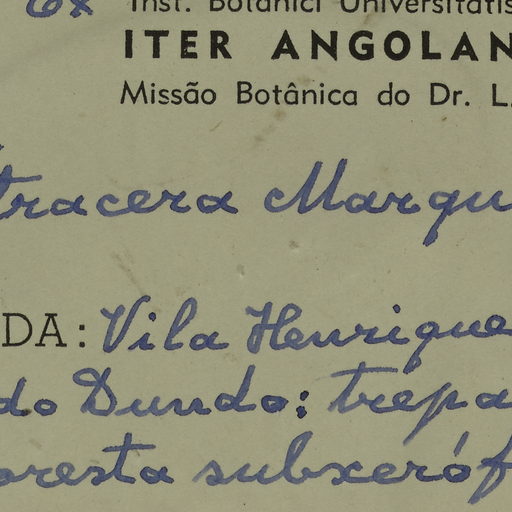 Ex Inst. Botanici Universitatis
ITER ANGOLAN
Missão Botânica do Dr. L.
tracera Marqu
DA: Vila Henrique
do Dundo: trepa
oresta subxeróf